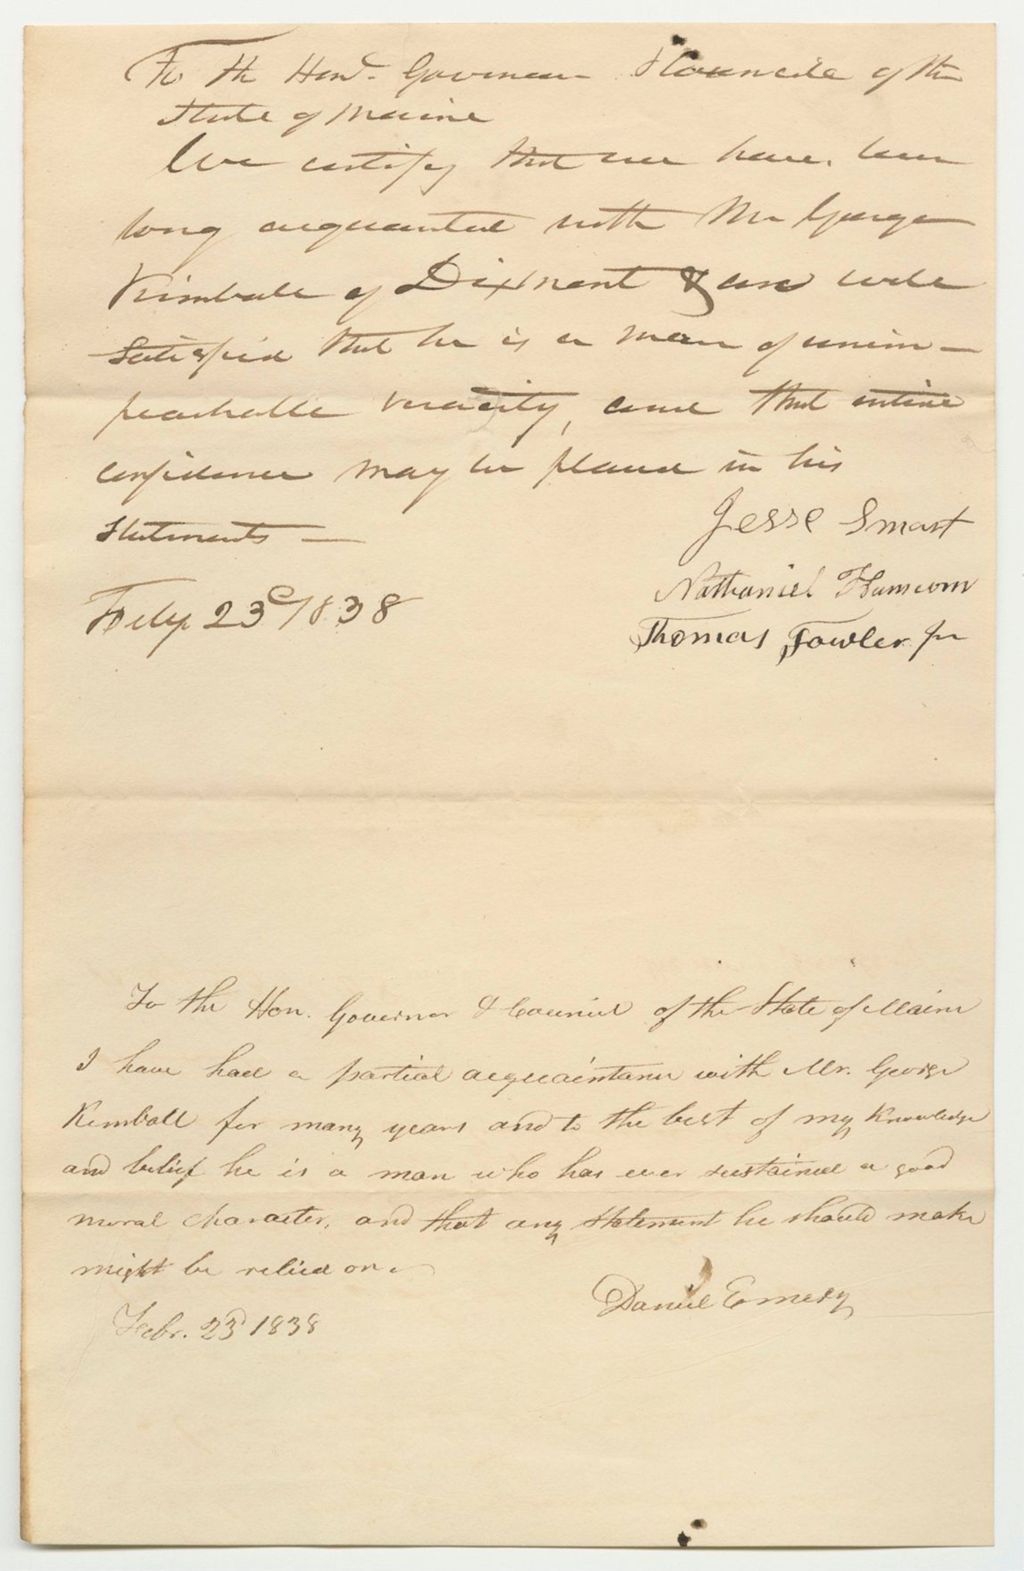 To the Hond. Governour & Councill of the
State of Maine
We certify that we have been
long acquainted with Mr George
Kimball of Dixmont & are well
satisfied that he is a man of unim-
peachable veracity, and that entire
confidence may be placed in his
statements —
Feby 23d 1838
Jesse Smart
Nathaniel Hanscom
Thomas Fowler Jr
To the Hon. Governor & Council of the State of Maine
I have had a partial acquaintance with Mr. George
Kimball for many years and to the best of my knowledge
and belief he is a man who has ever sustained a good
moral character, and that any statement he should make
might be relied on.
Daniel Emery
Febr. 23d 1838